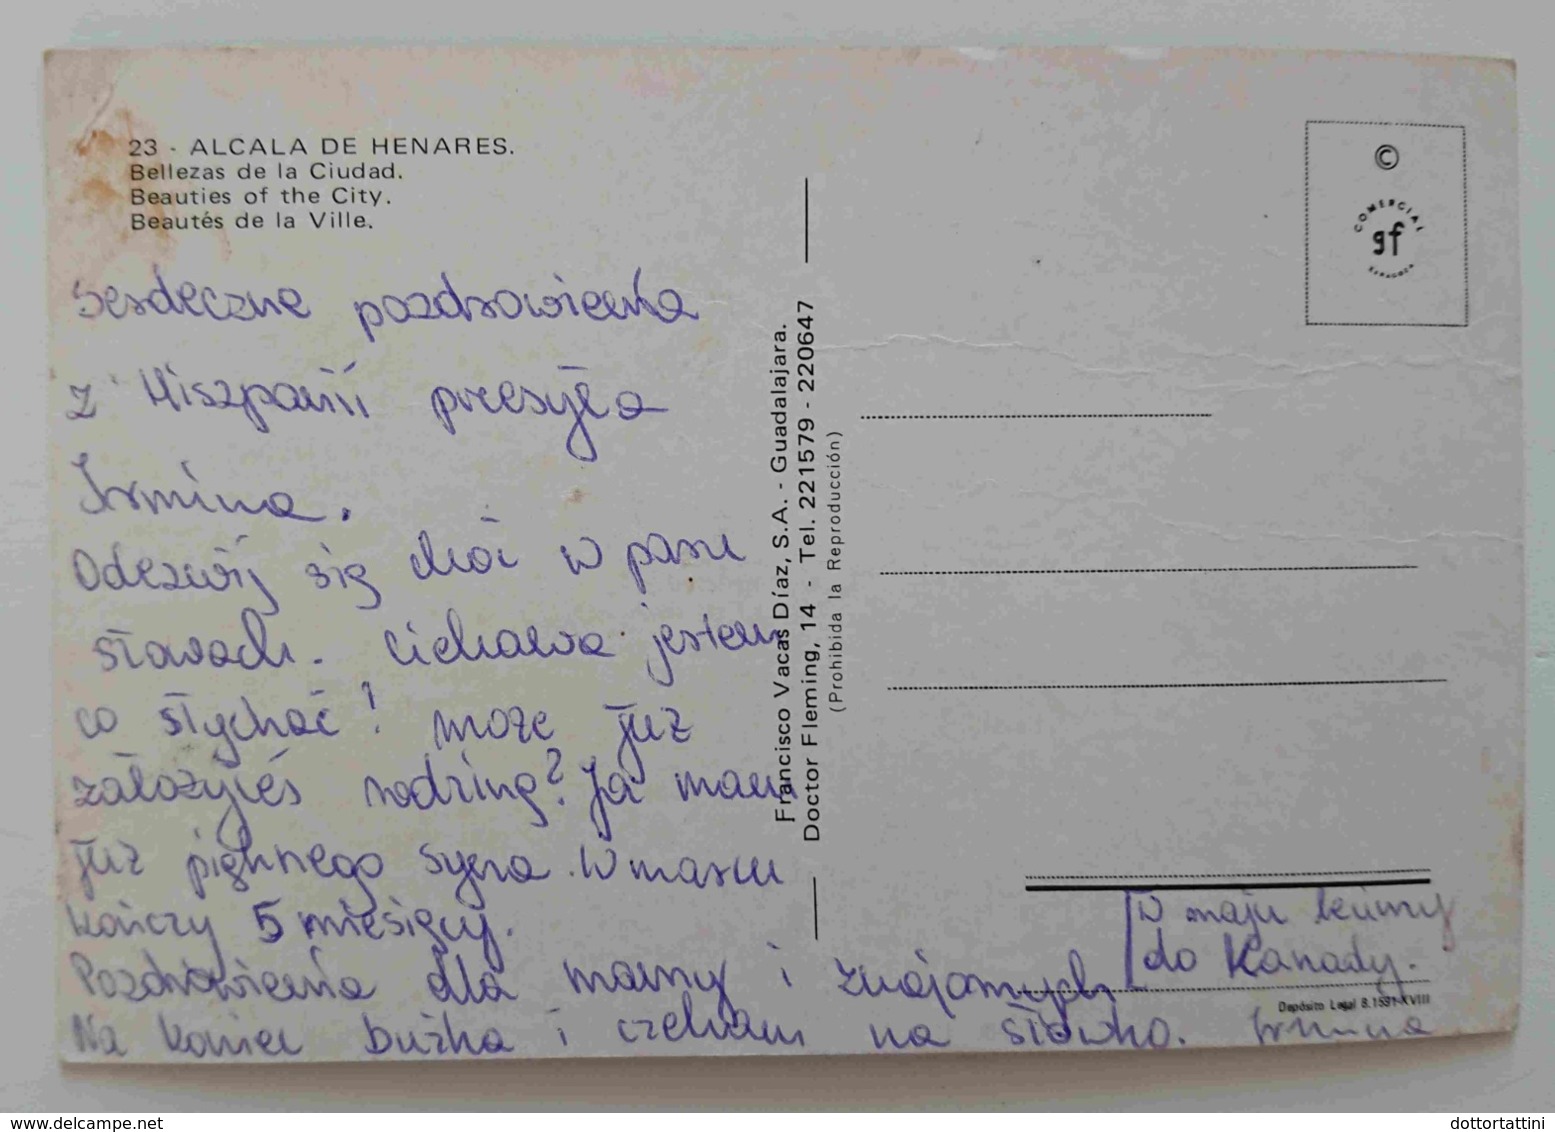 23 - ALCALA DE HENARES.
Bellezas de la Ciudad.
Beauties of the City.
Beautés de la Ville.
Serdeczne pozdrowienia
z Hiszpanii przesyła
Irmina.
Odezwij się choć w paru
słowach. Ciekawa jestem
co słychać! może już
założyłeś rodzinę? Ja mam
już pięknego syna. W marcu
kończy 5 miesięcy.
Pozdrowienia dla mamy i znajomych
Na koniec buźka i czekam na słówko. Irmina
W maju lecimy
do Kanady.
Francisco Vacas Díaz, S.A. - Guadalajara.
Doctor Fleming, 14 - Tel. 221579 - 220647
(Prohibida la Reproducción)
©
COMERCIAL
gf
ZARAGOZA
Depósito Legal B.1531-XVIII
delcampe.net
dottortattini